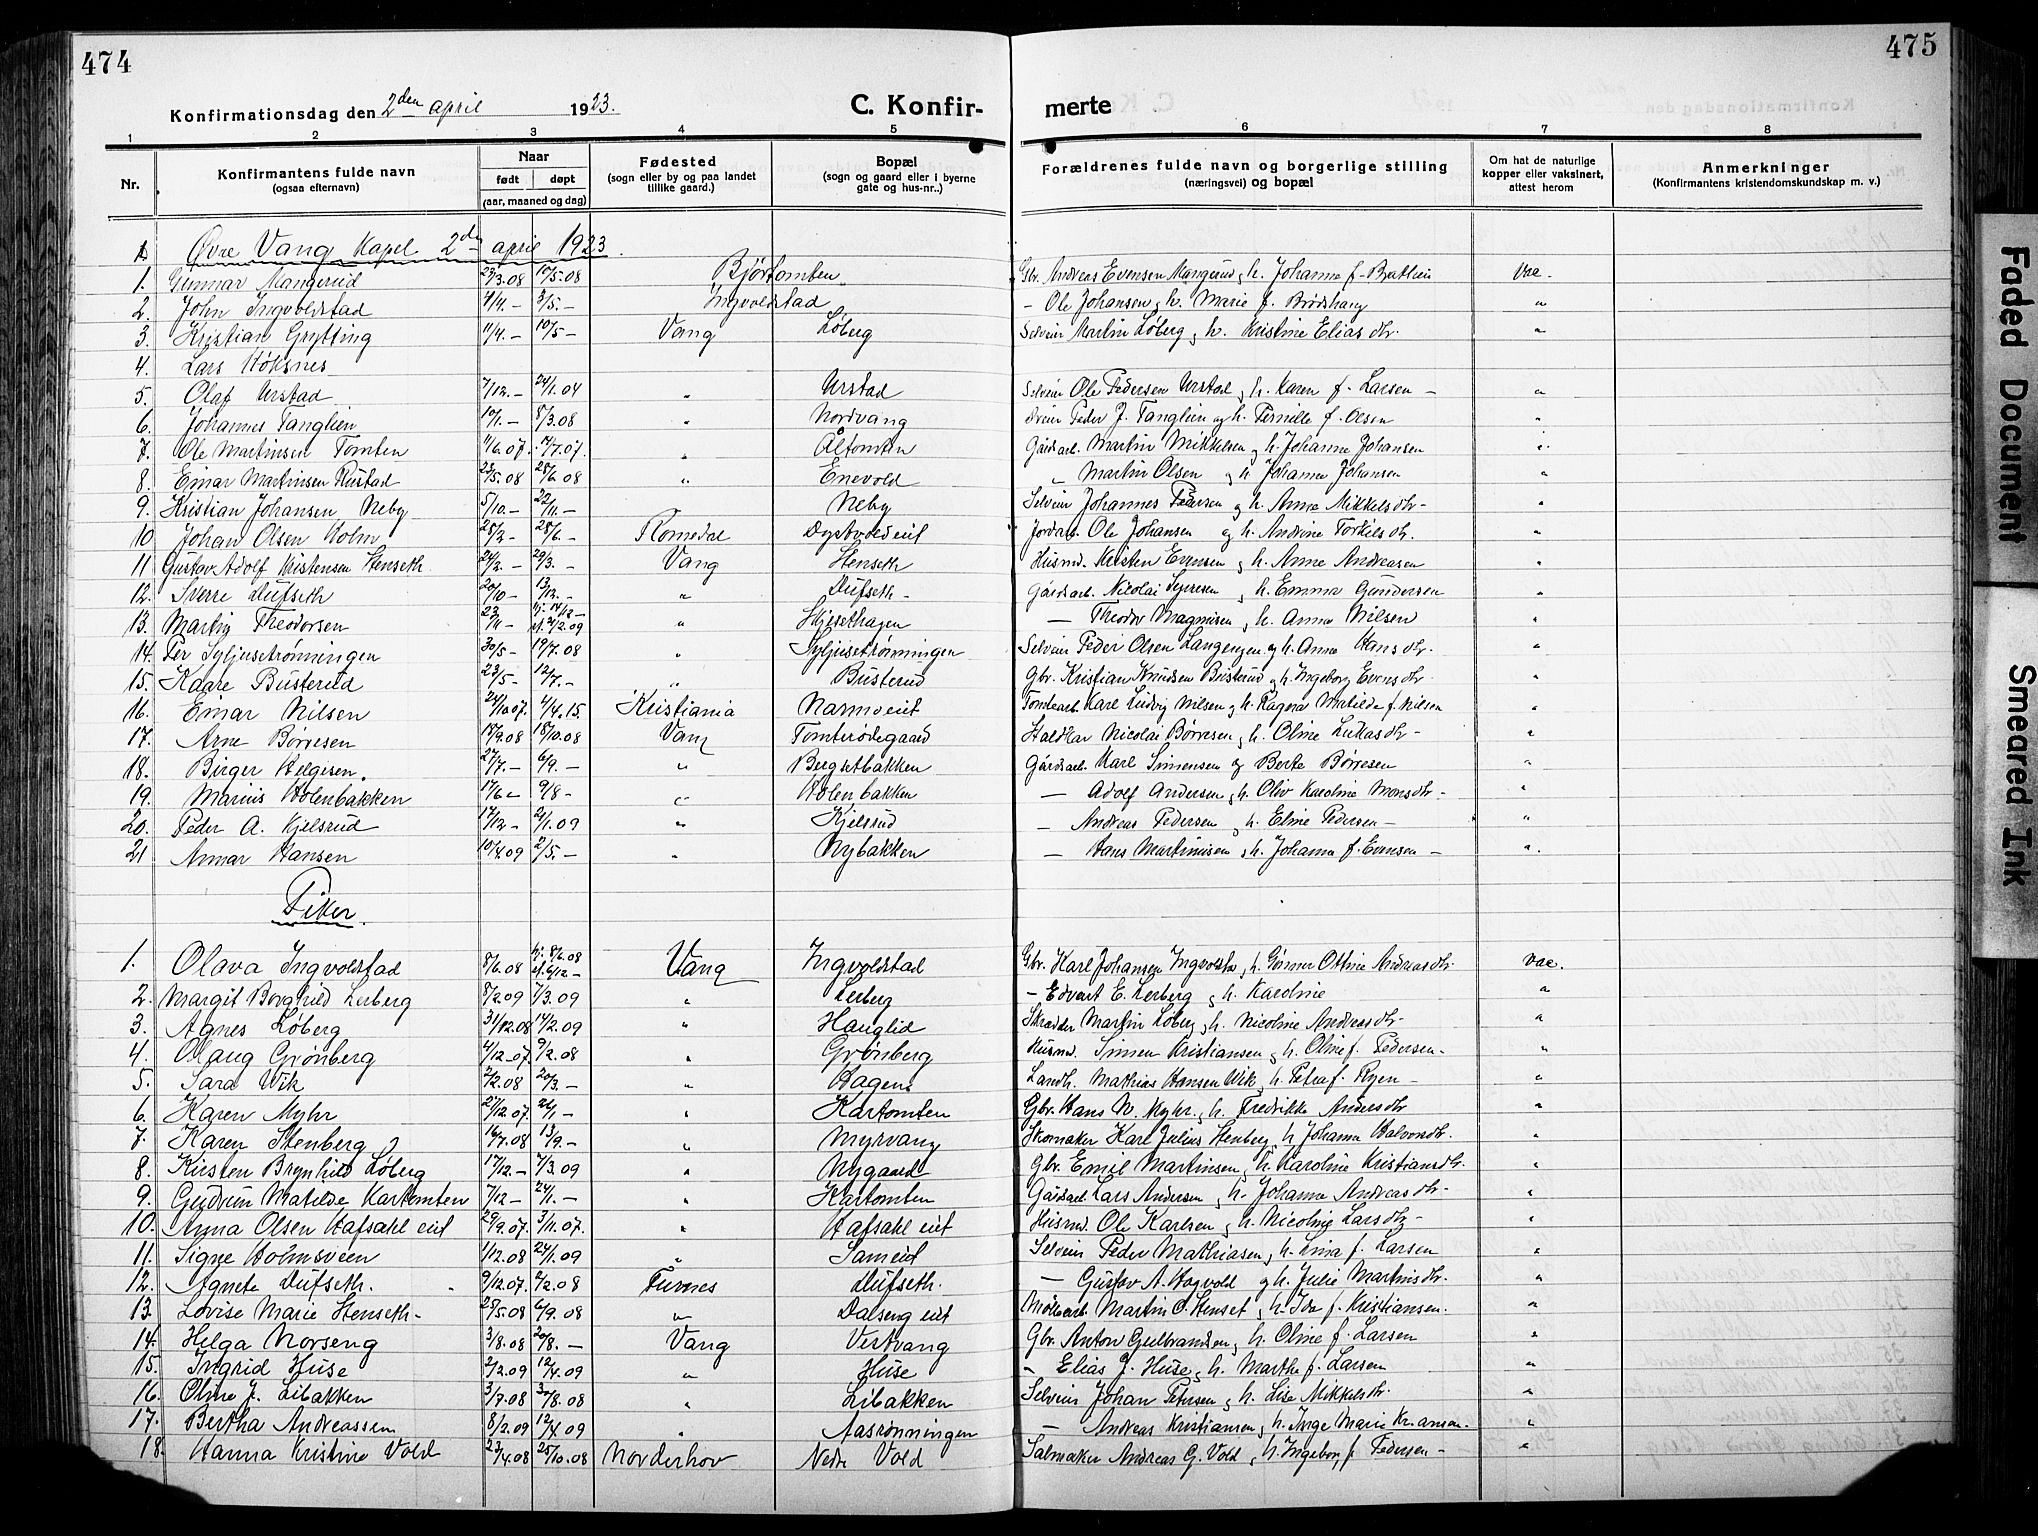 474
Konfirmationsdag den 2den april 1923.
C. Konfir-
1 2 3 4 5
Nr. Konfirmantens fulde navn (ogsaa efternavn) Naar født døpt (aar, maaned og dag) Fødested (sogn eller by og paa landet tillike gaard.) Bopæl (sogn og gaard eller i byerne gate og hus-nr.)
Øvre Vang Kapel 2den april 1923.
1. Gunnar Mangerud 23/3.08 10/5.08 Bjørtomten
2. John Ingvoldstad 4/4.- 3/5.- Ingvoldstad
3. Kristian Grytting 11/4.- 10/5- Vang Løberg
4. Lars Høksnes
5. Olaf Urstad 7/12.- 24/1.04 " Urstad
6. Johannes Tanglien 10/1.- 8/3.08 " Nordvang
7. Ole Martinsen Tomten 11/6.07. 14/7.07. " Åltomten
8. Einar Martinsen Rustad 23/5.08 28/6.08 " Enevold
9. Kristian Johansen Neby 5/10- 22/11.- " Neby
10 Johan Olsen Holm 25/2- 28/6- Romedal
11 Gustav Adolf Kristensen Stenseth 24/2.- 29/3.- Vang Stenseth
12. Sverre Dufseth 20/10- 13/12.- " Dufseth-
13. Martin Theodorsen 23/11- hj. 14/12- st. 21/2.09 "
14. Per Syljusetrønningen 30/5- 19/7.08 " Syljusetrønningen
15. Kaare Busterud 23/5- 12/7.- " Busterud
16. Einar Nilsen 24/10.07. 4/4.15. Kristiania
17. Arne Børresen 17/9.08 18/10.08 Vang Tomterødegaard
18. Birger Helgesen. 27/7.- 6/9.- " Bergsetbakken
19. Marius Holenbakken 17/6- 9/8- " Holenbakken
20. Peder A. Kjelsrud 17/12- 21/1.09 " Kjelsrud
21 Annar Hansen 10/4.09 2/5.- " Nybakken
Piker.
1. Olava Ingvoldstad 8/6.08 hj. 8/6.08 st. 6/12- Vang Ingvoldstad
2. Margit Borghild Lerberg 8/2.09 7/3.09 " Lerberg
3. Agnes Løberg 31/12.08 14/2.09 " Hauglid
4. Olaug Grønberg 4/12-07. 9/2.08 " Grønberg
5. Sara Wik 2/2.08 20/3.- " Hagen.
6. Karen Myhr 27/12.07. 26/1- " Kartomten
7. Karen Stenberg 16/7.08 13/9.- " Myrvang
8. Kirsten Brynhild Løberg 17/12- 7/3.09 " Nygaard
9. Gudrun Matilde Kartomten 7/12- 24/1.- " Kartomten
10. Anna Olsen Hafsahl eiet 29/9.07. 3/11.07. " Hafsahl eiet
11. Signe Holmsveen 1/12.08 24/1.09 " Sameiet
12. Agnete Dufseth. 9/12.07. 2/2.08 Furnes Dufseth.
13. Lovise Marie Stenseth- 29/5.08 6/9.08 " Dalseng eiet
14. Helga Norseng 3/8.08 20/8.- Vang Vestvang
15. Ingrid Huse 2/2.09 12/4.09 " Huse
16. Oline J. Libakken 3/7.08 30/8.08 " Libakken
17. Bertha Andreassen 8/2.09 12/4.09 " Aasrønningen
18. Hanna Kristine Vold 23/4.08 25/10.08 Norderhov Nedre Vold
475
merte
6 7 8
Forældrenes fulde navn og borgerlige stilling (næringsvei) og bopæl Om hat de naturlige kopper eller vaksinert, attest herom Anmerkninger (Konfirmantens kristendomskundskap m. v.)
Gbr. Andreas Evensen Mangerud, h. Johanne f. Vac.
- Ole Johansen, h. Marie f. "
Selveier Martin Løberg, h. Kristine Eliasdtr. "
Selveier Ole Pedersen Urstad, h. Karen f. Larsen - "
Peder J. Tanglien og h. Pernille f. Olsen "
Gårdsarb. Martin Mikkelsen og h. Johanne Johansen "
- Martin Olsen og h. Johanne Johansen "
Selveier Johannes Pedersen og h. Anne Mikkelsdtr- "
Jordarb. Ole Johansen og h. Andrine Torkilsdtr. "
Husmd. Kristen Evensen og h. Anne Andreasen "
Gårdsarb. Nicolai og h. Emma Gundersen "
- Theodor Magnusen, h. Anna Nilsen "
Selveier Peder Olsen og h. Anne Hansdtr. "
Gbr. Kristian Knudsen Busterud og h. Ingeborg Evensdtr. "
Tomtearb. Karl Ludvig Nilsen og h. Ragna Matilde f. Nilsen "
Nicolai Børresen, h. Oline Lukasdtr- "
Gårdsarb. Karl Simensen og Berte Børresen "
- Adolf Andersen, h. Oliv Karoline Monsdtr- "
- Andreas Pedersen og h. Eline Pedersen- "
- Hans Martinusen, h. Johanne f. Evensen- "
Gbr. Karl Johansen Ingvolsta, h. Gunner Ottine Andreasdtr Vac.
- Edvart E. Lerberg, h. Karoline "
Skrædder Martin Løberg, h. Nicoline Andreasdtr- "
Husmd. Simen Kristiansen, h. Oline f. Pedersen- "
Landh. Mathias Hansen Wik, h. Petra f. Ryen- "
Gbr. Hans N. Myhr, h. Fredrikke Andersdtr "
Skomaker Karl Julius Stenberg, h. Johanne Halvorsdtr. "
Gbr. Emil Martinsen, h. Karoline Kristiansdtr. "
Gårdsarb. Lars Andersen, h. Johanne Andreasdtr- "
Husmd. Ole Karlsen, h. Nicoline Larsdtr- "
Selveier Peder Mathiasen, h. Lina f. Larsen "
- Gustav A. Hagvold og h. Julie Martinsdtr. "
Møllearb. Martin O. Stenset, h. Ida f. Kristiansen. "
Gbr. Anton Gulbrandsen, h. Oline f. Larsen "
- Elias J. Huse, h. Marthe f. Larsen "
Selveier Johan Petersen, h. Lise Mikkelsdtr. "
- Andreas Kristiansen, h. Inge Marie "
Salmaker Andreas G. Vold, h. Ingeborg f. Pedersen- "
Faded Document
Smeared Ink